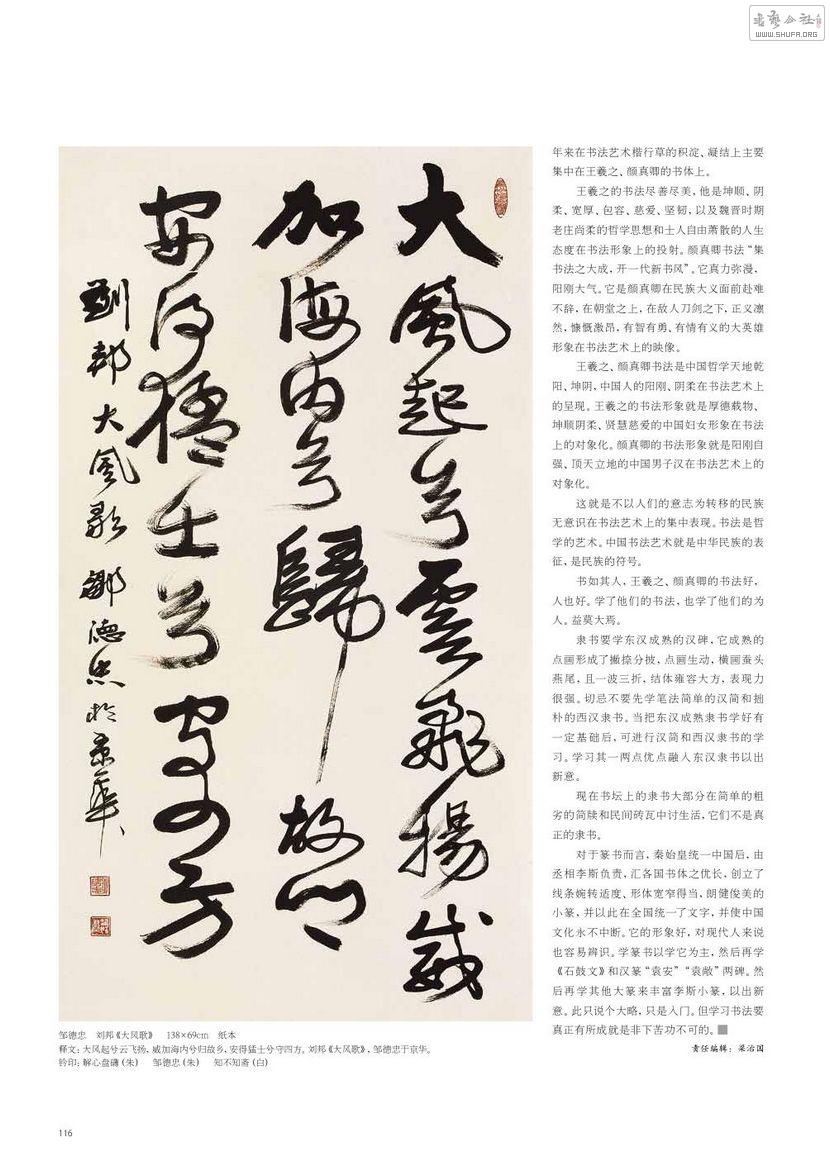 書法公社
WWW.SHUFA.ORG
大風起兮雲飛揚威
加海内兮歸故鄉
安得猛士兮守四方
劉邦大風歌鄒德忠於京華
邹德忠 刘邦《大风歌》 138×69cm 纸本
释文：大风起兮云飞扬，威加海内兮归故乡，安得猛士兮守四方。刘邦《大风歌》，邹德忠于京华。
钤印：解心盘礴（朱） 邹德忠（朱） 知不知斋（白）
年来在书法艺术楷行草的积淀、凝结上主要
集中在王羲之、颜真卿的书体上。
王羲之的书法尽善尽美，他是坤顺、阴
柔、宽厚、包容、慈爱、坚韧，以及魏晋时期
老庄尚柔的哲学思想和士人自由萧散的人生
态度在书法形象上的投射。颜真卿书法“集
书法之大成，开一代新书风”。它真力弥漫，
阳刚大气。它是颜真卿在民族大义面前赴难
不辞，在朝堂之上，在敌人刀剑之下，正义凛
然，慷慨激昂，有智有勇、有情有义的大英雄
形象在书法艺术上的映像。
王羲之、颜真卿书法是中国哲学天地乾
阳、坤阴，中国人的阳刚、阴柔在书法艺术上
的呈现。王羲之的书法形象就是厚德载物、
坤顺阴柔、贤慧慈爱的中国妇女形象在书法
上的对象化。颜真卿的书法形象就是阳刚自
强、顶天立地的中国男子汉在书法艺术上的
对象化。
这就是不以人们的意志为转移的民族
无意识在书法艺术上的集中表现。书法是哲
学的艺术。中国书法艺术就是中华民族的表
征，是民族的符号。
书如其人，王羲之、颜真卿的书法好，
人也好。学了他们的书法，也学了他们的为
人。益莫大焉。
隶书要学东汉成熟的汉碑，它成熟的
点画形成了撇捺分披，点画生动，横画蚕头
燕尾，且一波三折，结体雍容大方，表现力
很强。切忌不要先学笔法简单的汉简和拙
朴的西汉隶书。当把东汉成熟隶书学好有
一定基础后，可进行汉简和西汉隶书的学
习。学习其一两点优点融入东汉隶书以出
新意。
现在书坛上的隶书大部分在简单的粗
劣的简牍和民间砖瓦中讨生活，它们不是真
正的隶书。
对于篆书而言，秦始皇统一中国后，由
丞相李斯负责，汇各国书体之优长，创立了
线条婉转适度、形体宽窄得当，朗健俊美的
小篆，并以此在全国统一了文字，并使中国
文化永不中断。它的形象好，对现代人来说
也容易辨识。学篆书以学它为主，然后再学
《石鼓文》和汉篆“袁安”“袁敞”两碑。然
后再学其他大篆来丰富李斯小篆，以出新
意。此只说个大略，只是入门。但学习书法要
真正有所成就是非下苦功不可的。
责任编辑：梁治国
116